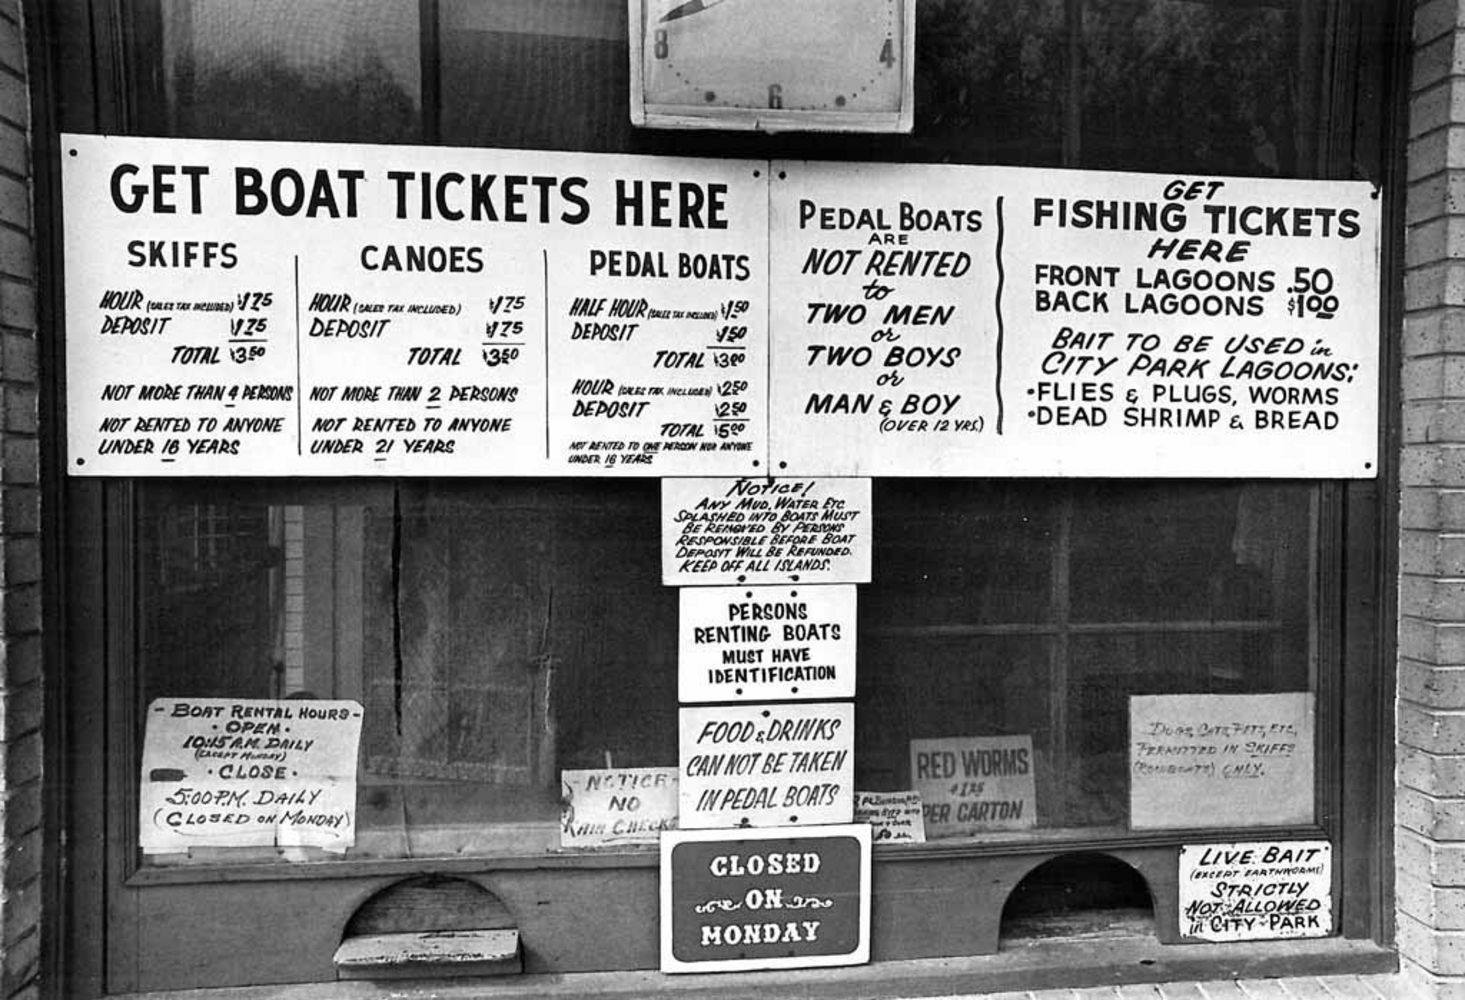 8
4
6
GET BOAT TICKETS HERE
SKIFFS
HOUR (SALES TAX INCLUDED) $1.75
DEPOSIT $1.75
TOTAL $3.50
NOT MORE THAN 4 PERSONS
NOT RENTED TO ANYONE
UNDER 16 YEARS
CANOES
HOUR (SALES TAX INCLUDED) $1.75
DEPOSIT $1.75
TOTAL $3.50
NOT MORE THAN 2 PERSONS
NOT RENTED TO ANYONE
UNDER 21 YEARS
PEDAL BOATS
HALF HOUR (SALES TAX INCLUDED) $1.50
DEPOSIT $1.50
TOTAL $3.00
HOUR (SALES TAX INCLUDED) $2.50
DEPOSIT $2.50
TOTAL $5.00
NOT RENTED TO ONE PERSON NOR ANYONE
UNDER 16 YEARS
PEDAL BOATS
ARE
NOT RENTED
to
TWO MEN
or
TWO BOYS
or
MAN & BOY
(OVER 12 YRS.)
GET
FISHING TICKETS
HERE
FRONT LAGOONS .50
BACK LAGOONS $1.00
BAIT TO BE USED in
CITY PARK LAGOONS:
•FLIES & PLUGS, WORMS
•DEAD SHRIMP & BREAD
NOTICE!
ANY MUD, WATER ETC.
SPLASHED INTO BOATS MUST
BE REMOVED BY PERSONS
RESPONSIBLE BEFORE BOAT
DEPOSIT WILL BE REFUNDED.
KEEP OFF ALL ISLANDS.
PERSONS
RENTING BOATS
MUST HAVE
IDENTIFICATION
FOOD & DRINKS
CAN NOT BE TAKEN
IN PEDAL BOATS
CLOSED
ON
MONDAY
- BOAT RENTAL HOURS -
• OPEN •
10:15 A.M. DAILY
(EXCEPT MONDAY)
• CLOSE •
5:00 P.M. DAILY
(CLOSED ON MONDAY)
- NOTICE -
NO
RAIN CHECKS
RED WORMS
$1.25
PER CARTON
DOGS, CATS, PETS, ETC.
PERMITTED IN SKIFFS
(ROWBOATS) ONLY.
LIVE BAIT
(EXCEPT EARTHWORMS)
STRICTLY
NOT ALLOWED
in CITY PARK